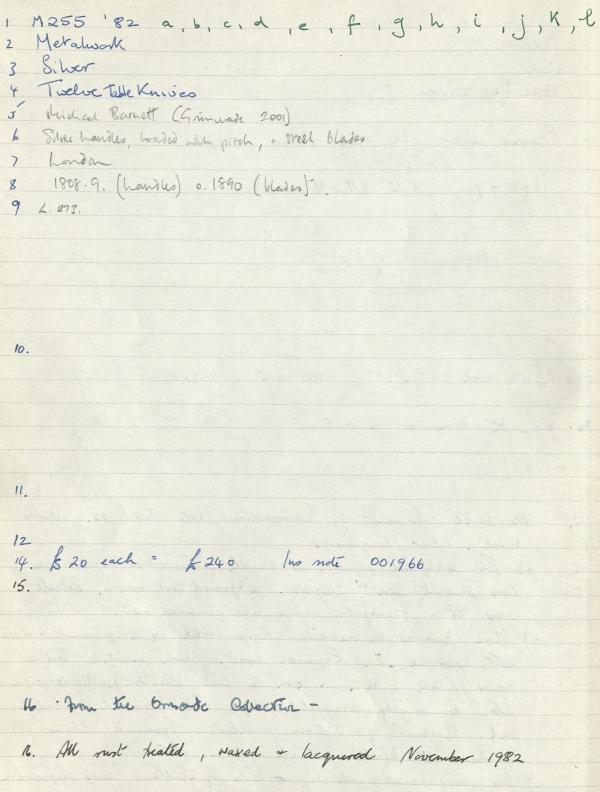 1 M255 '82 a, b, c, d, e, f, g, h, i, j, K, l
2 Metalwork
3 Silver
4 Twelve Table Knives
5 Michael Barnett (Grimwade 2001)
6 Silver handles, loaded with pitch, + steel blades
7 London
8 1808-9. (handles) c. 1890 (blades)
9 L. 273.
10.
11.
12
14. £20 each = £240 Ins note 001966
15.
16 From the Ormonde Collection -
16. All rust treated, waxed + lacquered November 1982